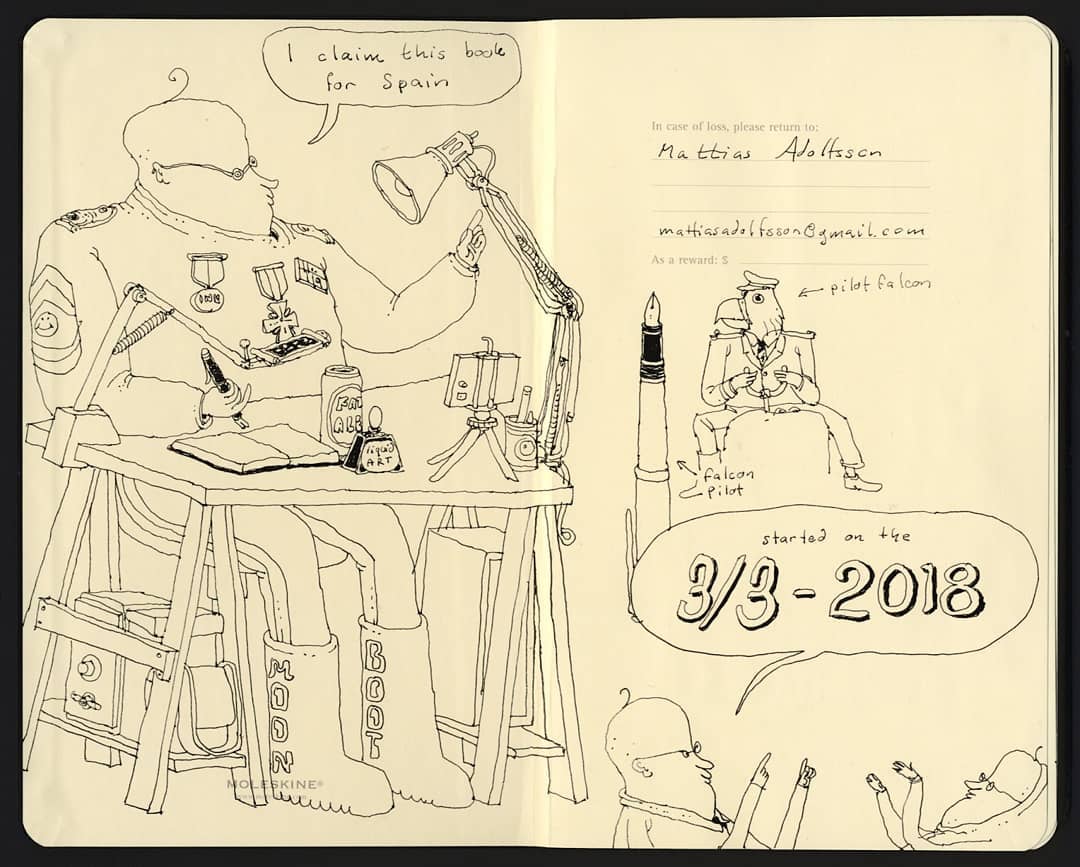 I claim this book
for Spain
FAT
ALE
liquid
ART
MOON
BOOT
MOLESKINE®
In case of loss, please return to:
Mattias Adolfsson
mattiasadolfsson@gmail.com
As a reward: $
pilot falcon
falcon
pilot
started on the
3/3-2018